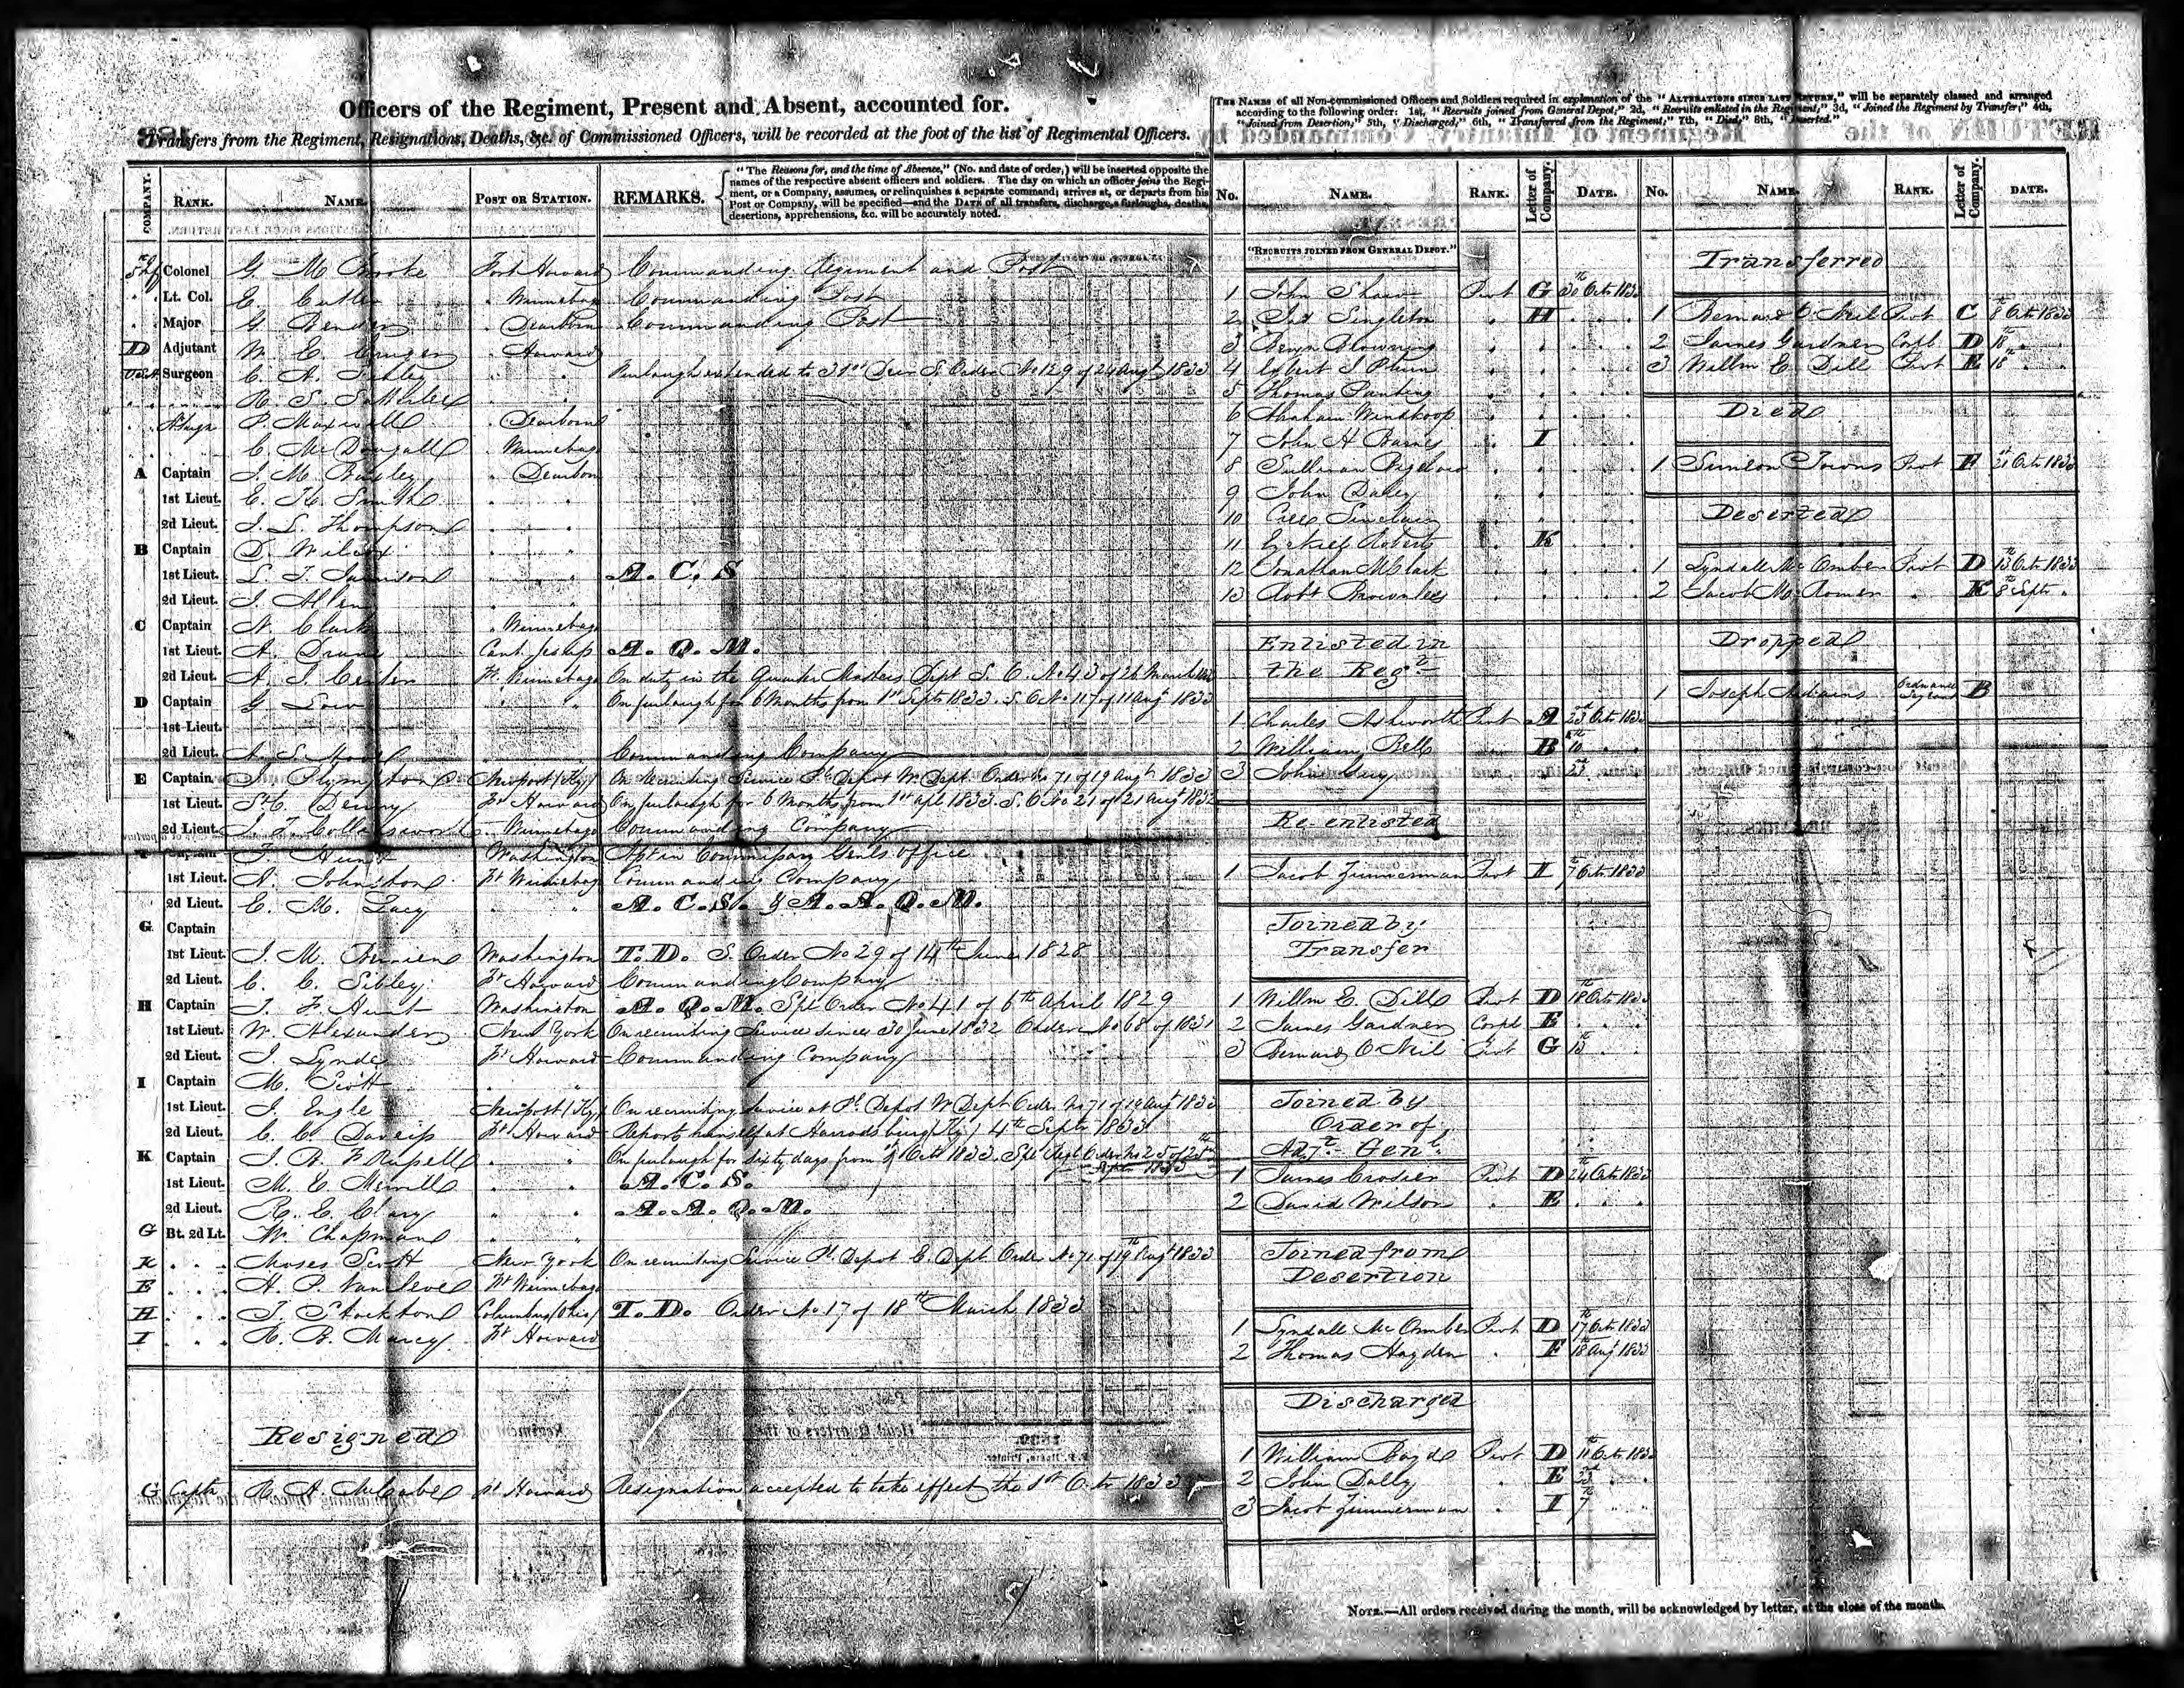 Officers of the Regiment, Present and Absent, accounted for.
Transfers from the Regiment, Resignations, Deaths, &c. of Commissioned Officers, will be recorded at the foot of the list of Regimental Officers.
COMPANY. RANK. NAME. POST OR STATION. REMARKS.
"The Reasons for, and the time of Absence," (No. and date of order,) will be inserted opposite the
names of the respective absent officers and soldiers. The day on which an officer joins the Regi-
ment, or a Company, assumes, or relinquishes a separate command; arrives at, or departs from his
Post or Company, will be specified—and the DATE of all transfers, discharges, furloughs, deaths,
desertions, apprehensions, &c. will be accurately noted.
Colonel G. M. Brooke Fort Howard Commanding Regiment and Post
Lt. Col. E. Cutler " Winnebago Commanding Post
Major G. Bender " Dearborn Commanding Post
D Adjutant W. E. Cruger " Howard
Surgeon Furlough extended to 31st Decr S. Order No 129 of 24 Augt 1833
P. Maxwell " Dearborn
C. McDougall " Winnebago
A Captain J. M. Baxley " Dearborn
1st Lieut. E. K. Smith
2d Lieut. J. L. Thompson
B Captain D. Wilcox
1st Lieut. L. T. Jamison A. C. S
2d Lieut. J. Allen
C Captain N. Clark " Winnebago
1st Lieut. A. Drane Cant. Jesup A. Q. M.
2d Lieut. A. J. Center Ft. Winnebago On duty in the Quarter Masters Dept S. O. No 43 of 26 March
D Captain G. Low On furlough for 6 Months from 1st Septr 1833. S. O No 117 of 11 Augt 1833
1st Lieut.
2d Lieut. A. S. Hooe Commanding Company
E Captain J. Plympton Newport (Ky) On Recruiting Service Pl. Depot W. Dept. Order No 71 of 19 Augt 1833
1st Lieut. St C. Denny Ft Howard On furlough for 6 Months from 1st
2d Lieut. J. T. Collinsworth " Winnebago Commanding Company
Captain T. Hunt Washington Asst in Commissary Genls office
1st Lieut. A. Johnston Ft Winnebago Commanding Company
2d Lieut. E. M. Lacy A. C. S. & A. A. Q. M.
G Captain
1st Lieut. J. M. Berrien Washington T. D. S. Order No 29 of 14th June 1828
2d Lieut. C. C. Sibley Ft Howard Commanding Company
H Captain T. F. Hunt Washington A. Q. M. Spl Order No 41 of 6th April 1829
1st Lieut. W. Alexander New York On recruiting Service since 30 June 1832 Order No 68 of 1831
2d Lieut. I. Lynde Ft Howard Commanding Company
I Captain M. Scott
1st Lieut. J. Engle Newport (Ky) On recruiting Service at Pl. Depot W Dept Order No 71 of 19 Augt 1833
2d Lieut. C. C. Daveiss Ft Howard Reports himself at Harrodsburg (Ky) 4th Septr 1833
K Captain J. B. F. Russell On furlough for sixty days from
Septr 1833
1st Lieut. M. E. Merrill A. C. S.
2d Lieut. R. E. Clary A. A. Q. M.
G Bt. 2d Lt. W. Chapman
K Moses Scott New York On recruiting Service Pl. Depot E. Dept Order No 71 of 19th Augt 1833
E H. P. Van Cleve Ft Winnebago
H T. Stockton Columbus (Ohio) T. D. Order No 17 of 18th March 1833
I R. B. Marcy Ft Howard
Resigned
G Captn R. A. McCabe Ft Howard Resignation accepted to take effect the 1st Octr 1833
THE NAMES of all Non-commissioned Officers and Soldiers required in explanation of the "ALTERATIONS SINCE LAST RETURN," will be separately classed and arranged
according to the following order: 1st, "Recruits joined from General Depot," 2d, "Recruits enlisted in the Regiment," 3d, "Joined the Regiment by Transfer," 4th,
"Joined from Desertion," 5th, "Discharged," 6th, "Transferred from the Regiment," 7th, "Died," 8th, "Deserted."
No. NAME. RANK. Letter of Company. DATE.
"RECRUITS JOINED FROM GENERAL DEPOT."
1 John Shaw Privt G 30th Octr 1833
2 Jas Singleton " H
3
4 Robert S
5 Thomas
6 Abraham Winskoop
7 John H Barnes " I
8 Sullivan Bigelow
9 John Daley
10 Sinclair
11 Ezekiel Roberts " K
12 Jonathan McClark
13 Robt Brownlee
Enlisted in
the Regt
1 Charles Ashworth Privt A 23d Octr 1833
2 William Bell B 10th
3 John Guy " 23d
Re enlisted
1 Jacob Zimmerman Privt I 7th Octr 1833
Joined by
Transfer
1 Willm E. Dill Privt D 18th Octr 1833
2 James Gardner Corpl E
3 Bernard O'Neil Privt G
Joined by
Order of
Adjt Genl
1 James Crosier Privt D 24 Octr 1833
2 David Wilson " E
Joined from
Desertion
1 Lyndall McOmber Privt D 17th Octr 1833
2 Thomas Hayden " F 18th Augt 1833
Discharged
1 William Boyd Privt D 11th Octr 1833
2 John Dolly " E 23d
3 Jacob Zimmerman " I 7th
No. NAME. RANK. Letter of Company. DATE.
Transferred
1 Bernard O'Neil Privt C 8th Octr 1833
2 James Gardner Corpl D 18th
3 Willm E. Dill Privt E 18th
Died
1 Simeon Towns Privt F 21st Octr 1833
Deserted
1 Lyndall McOmber Privt D 13th Octr 1833
2 Jacob M. Romer " K 8th Septr
Dropped
1 Joseph Adams Ordnance Sergeant B
NOTE.—All orders received during the month, will be acknowledged by letter, at the close of the month.